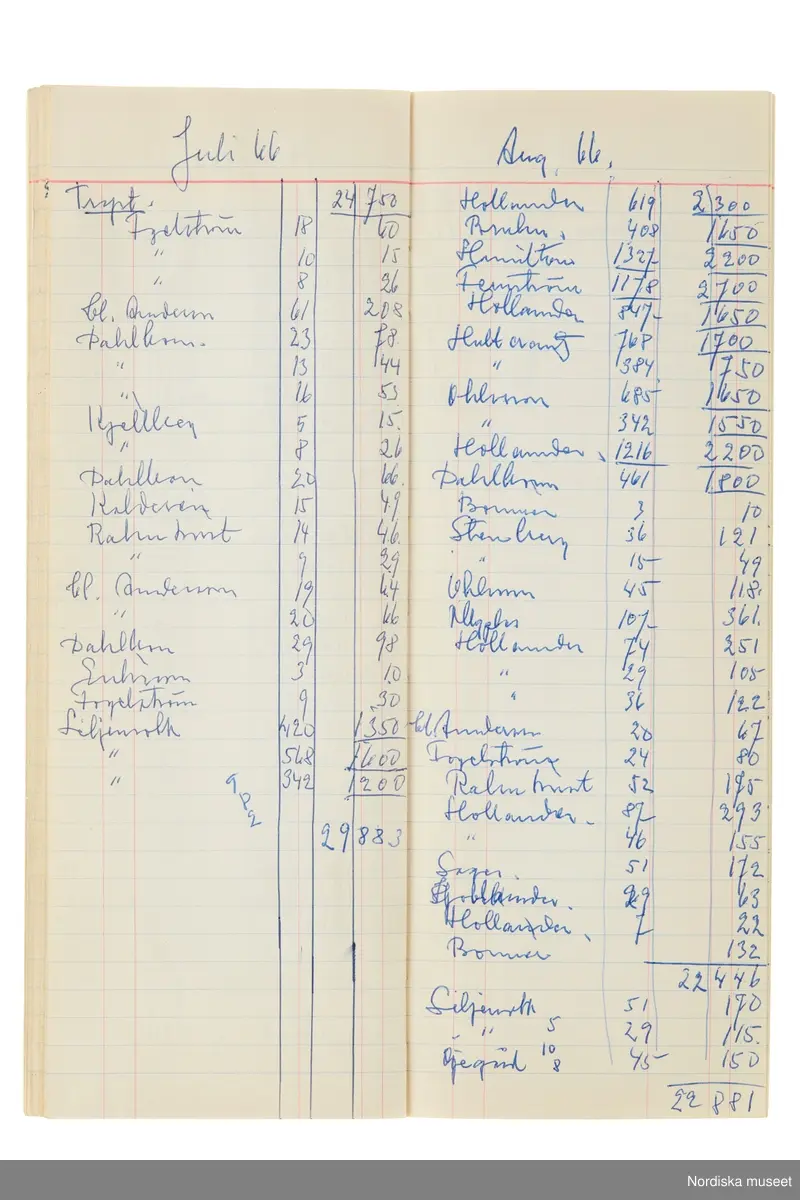 Juli 66
Trspt. 24 750
Fogelström 18 60
" 10 15
" 8 26
Cl. Anderson 61 208
Dahlkom. 23 78
" 13 44
" 16 53
Kjellberg 5 15.
" 8 26
Dahlkom 20 66.
15 49
Ralm 14 46.
" 9 29
Cl. Anderson 19 64
" 20 66
Dahlkom 29 98
3 10
Fogelström 9 30
Siljenroth 420 1350
" 568 1600
" 342 1200
29 883
Aug. 66.
Hollander 619 2 300
Bruhn. 408 1650
Hamilton 1327 2200
Fernström 1178 2700
Hollander 847 1650
768 1700
" 384 750
Ohlsson 685 1650
" 342 1550
Hollander 1216 2200
Dahlkom 461 1800
Bonnier 3 10
Stensberg 36 121
" 15 49
Ohlsson 45 118.
107 361.
Hollander 74 251
" 29 105
" 36 122
Cl. Anderson 20 67
Fogelström 24 80
Ralm 52 175
Hollander. 87 293
" 46 155
Sager. 51 172
63
Hollander. 7 22
Bonnier 132
22 446
Siljenroth 51 170
" 5 29 115.
10 8 45 150
22 881
Nordiska museet